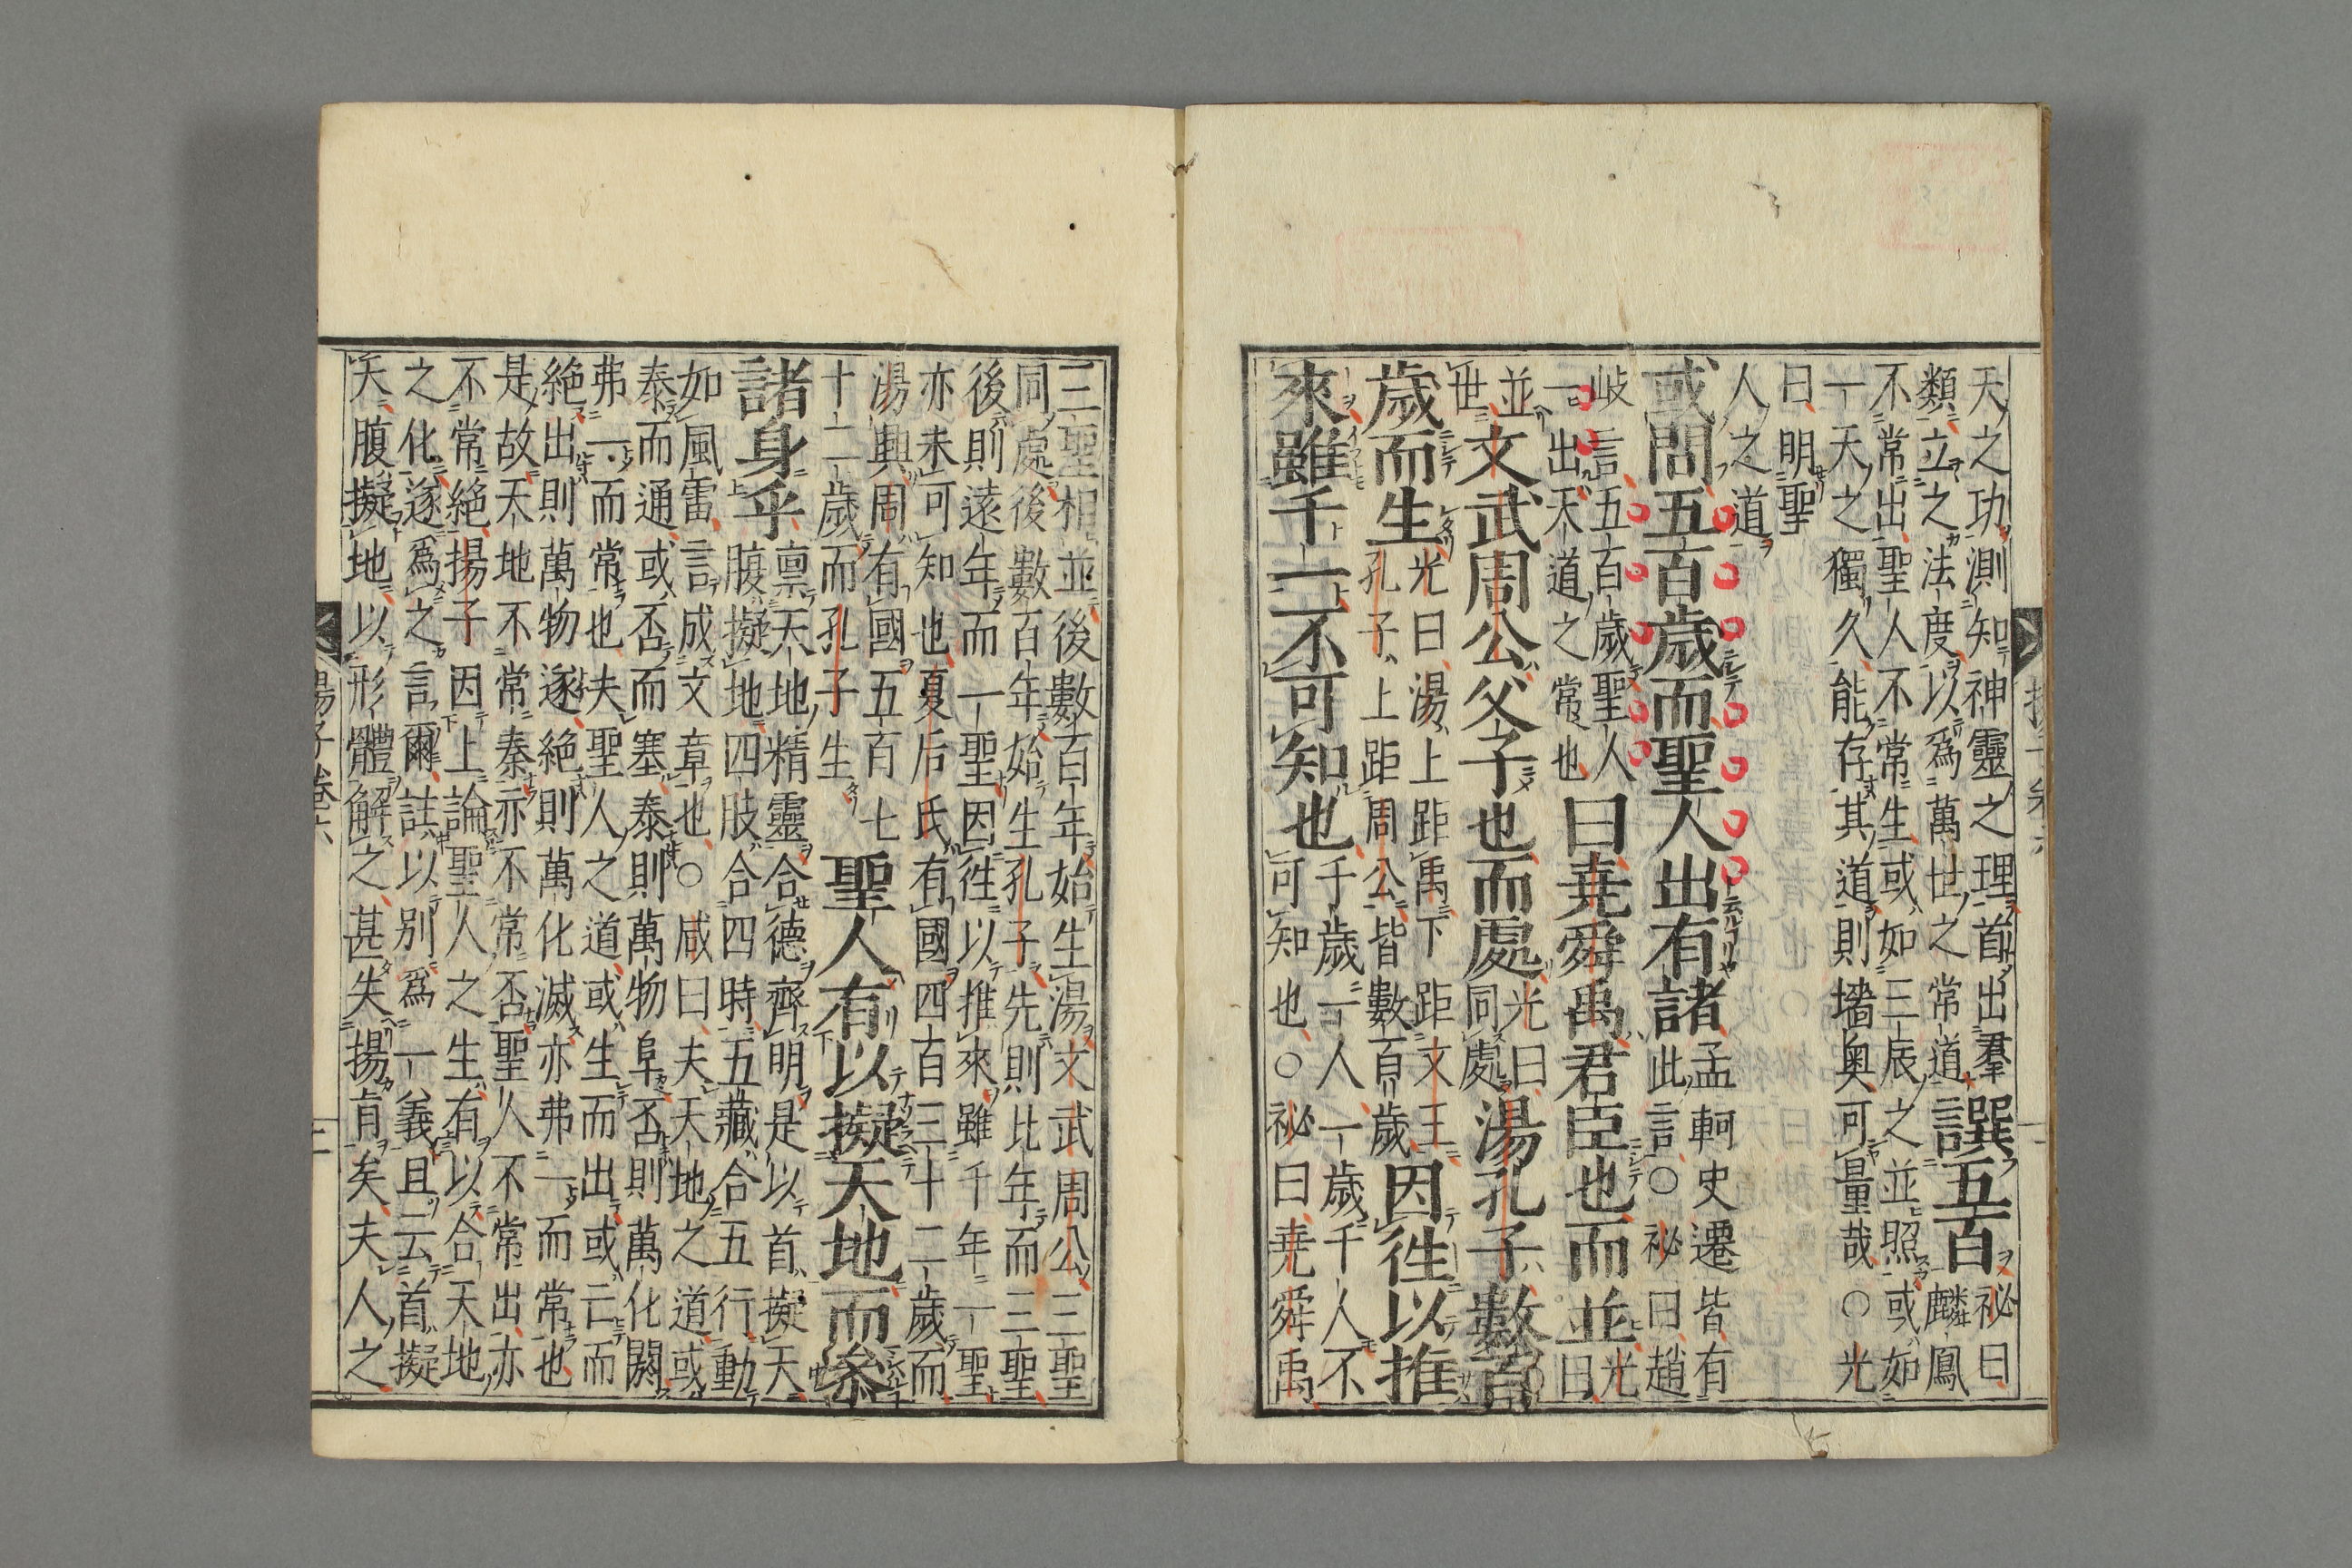 天之功測知神靈之理首出羣
類立之法度以爲萬世之常道
譔五百
祕曰
麟鳳
不常出聖人不常生或如三辰之並照或如
一天之獨久能存其道則墻奥可量哉○光
曰明聖
人之道
或問五百歲而聖人出有諸
孟軻史遷皆有
此言○祕曰趙
岐言五百歲聖人
一出天道之常也
曰堯舜禹君臣也而並
光
曰
並
世
文武周公父子也而處
光曰
同處
湯孔子數百
歲而生
光曰湯上距禹下距文王
孔子上距周公皆數百歲
因徃以推
來雖千一不可知也
千歲一人一歲千人不
可知也○祕曰堯舜禹
三聖相並後數百年始生湯文武周公三聖
同處後數百年始生孔子先則比年而三聖
後則遠年而一聖因徃以推來雖千年一聖
亦未可知也夏后氏有國四百三十二歲而
湯興周有國五百七
十二歲而孔子生
聖人有以擬天地而參
諸身乎
禀天地精靈合德齊明是以首擬天
腹擬地四肢合四時五藏合五行動
如風雷言成文章也○咸曰夫天地之道或
泰而通或否而塞泰則萬物阜否則萬化闕
弗一而常也夫聖人之道或生而出或亡而
絶出則萬物遂絶則萬化滅亦弗一而常也
是故天地不常泰亦不常否聖人不常出亦
不常絶揚子因上論聖人之生有以合天地
之化遂爲之言爾註以别爲一義且云首擬
天腹擬地以形體解之甚失揚肯矣夫人之
揚子卷六